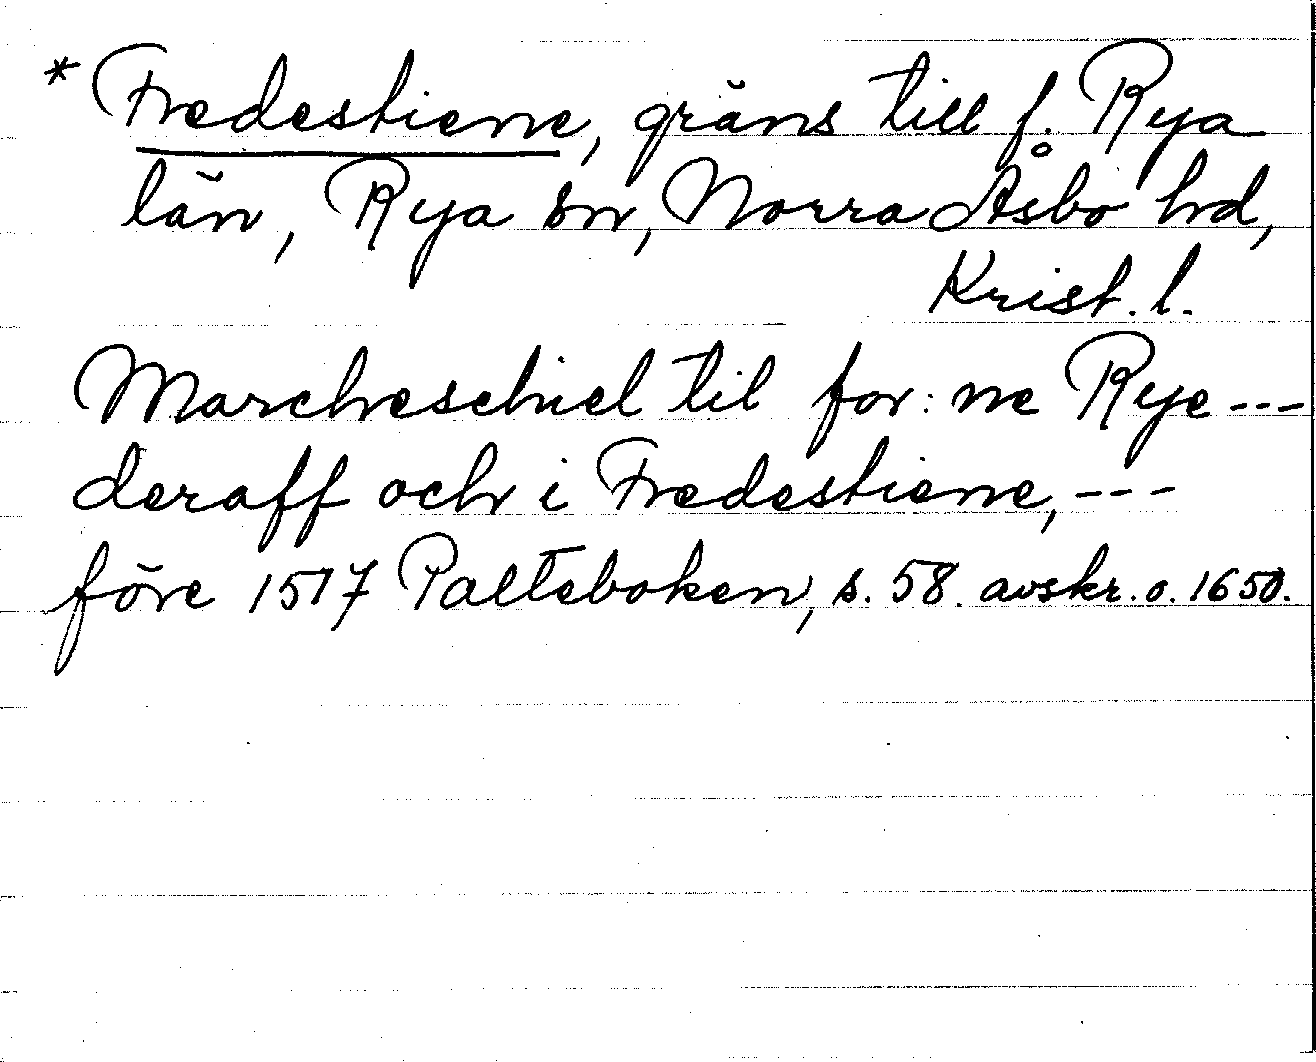 * Fredestiene, gräns till f. Rya
län, Rya sn, Norra Åsbo hd,
Krist. l.
Marcheschiel til for: ne Rye ---
deraff och i Fredestiene, ---
före 1517 Palteboken, s. 58. avskr. o. 1650.